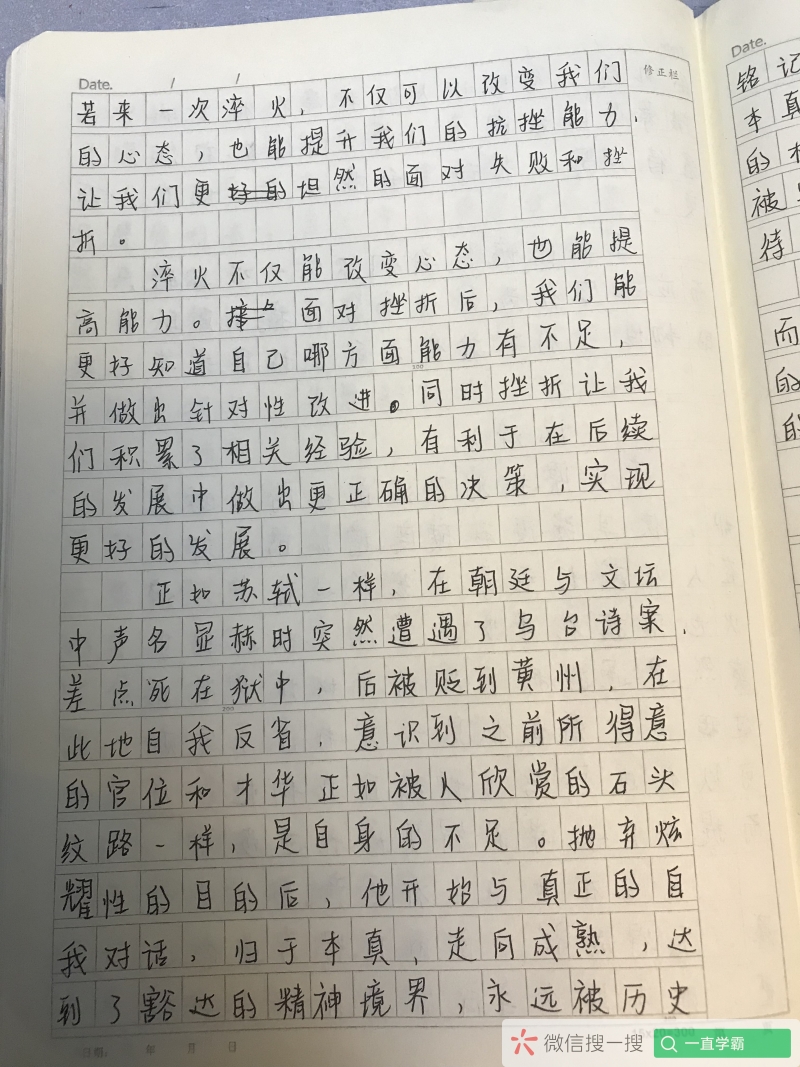 Date. / /
修正栏
若来一次淬火，不仅可以改变我们
的心态，也能提升我们的抗挫能力，
让我们更坦然的面对失败和挫
折。
淬火不仅能改变心态，也能提
高能力。面对挫折后，我们能
更好知道自己哪方面能力有不足，
并做出针对性改进。同时挫折让我
们积累了相关经验，有利于在后续
的发展中做出更正确的决策，实现
更好的发展。
正如苏轼一样，在朝廷与文坛
中声名显赫时突然遭遇了乌台诗案，
差点死在狱中，后被贬到黄州，在
此地自我反省，意识到之前所得意
的官位和才华正如被人欣赏的石头
纹路一样，是自身的不足。抛弃炫
耀性的目的后，他开始与真正的自
我对话，归于本真，走向成熟，达
到了豁达的精神境界，永远被历史
日期： 年 月 日
Date.
铭记
本真
的
被
待
而
自
的
微信搜一搜
一直学霸